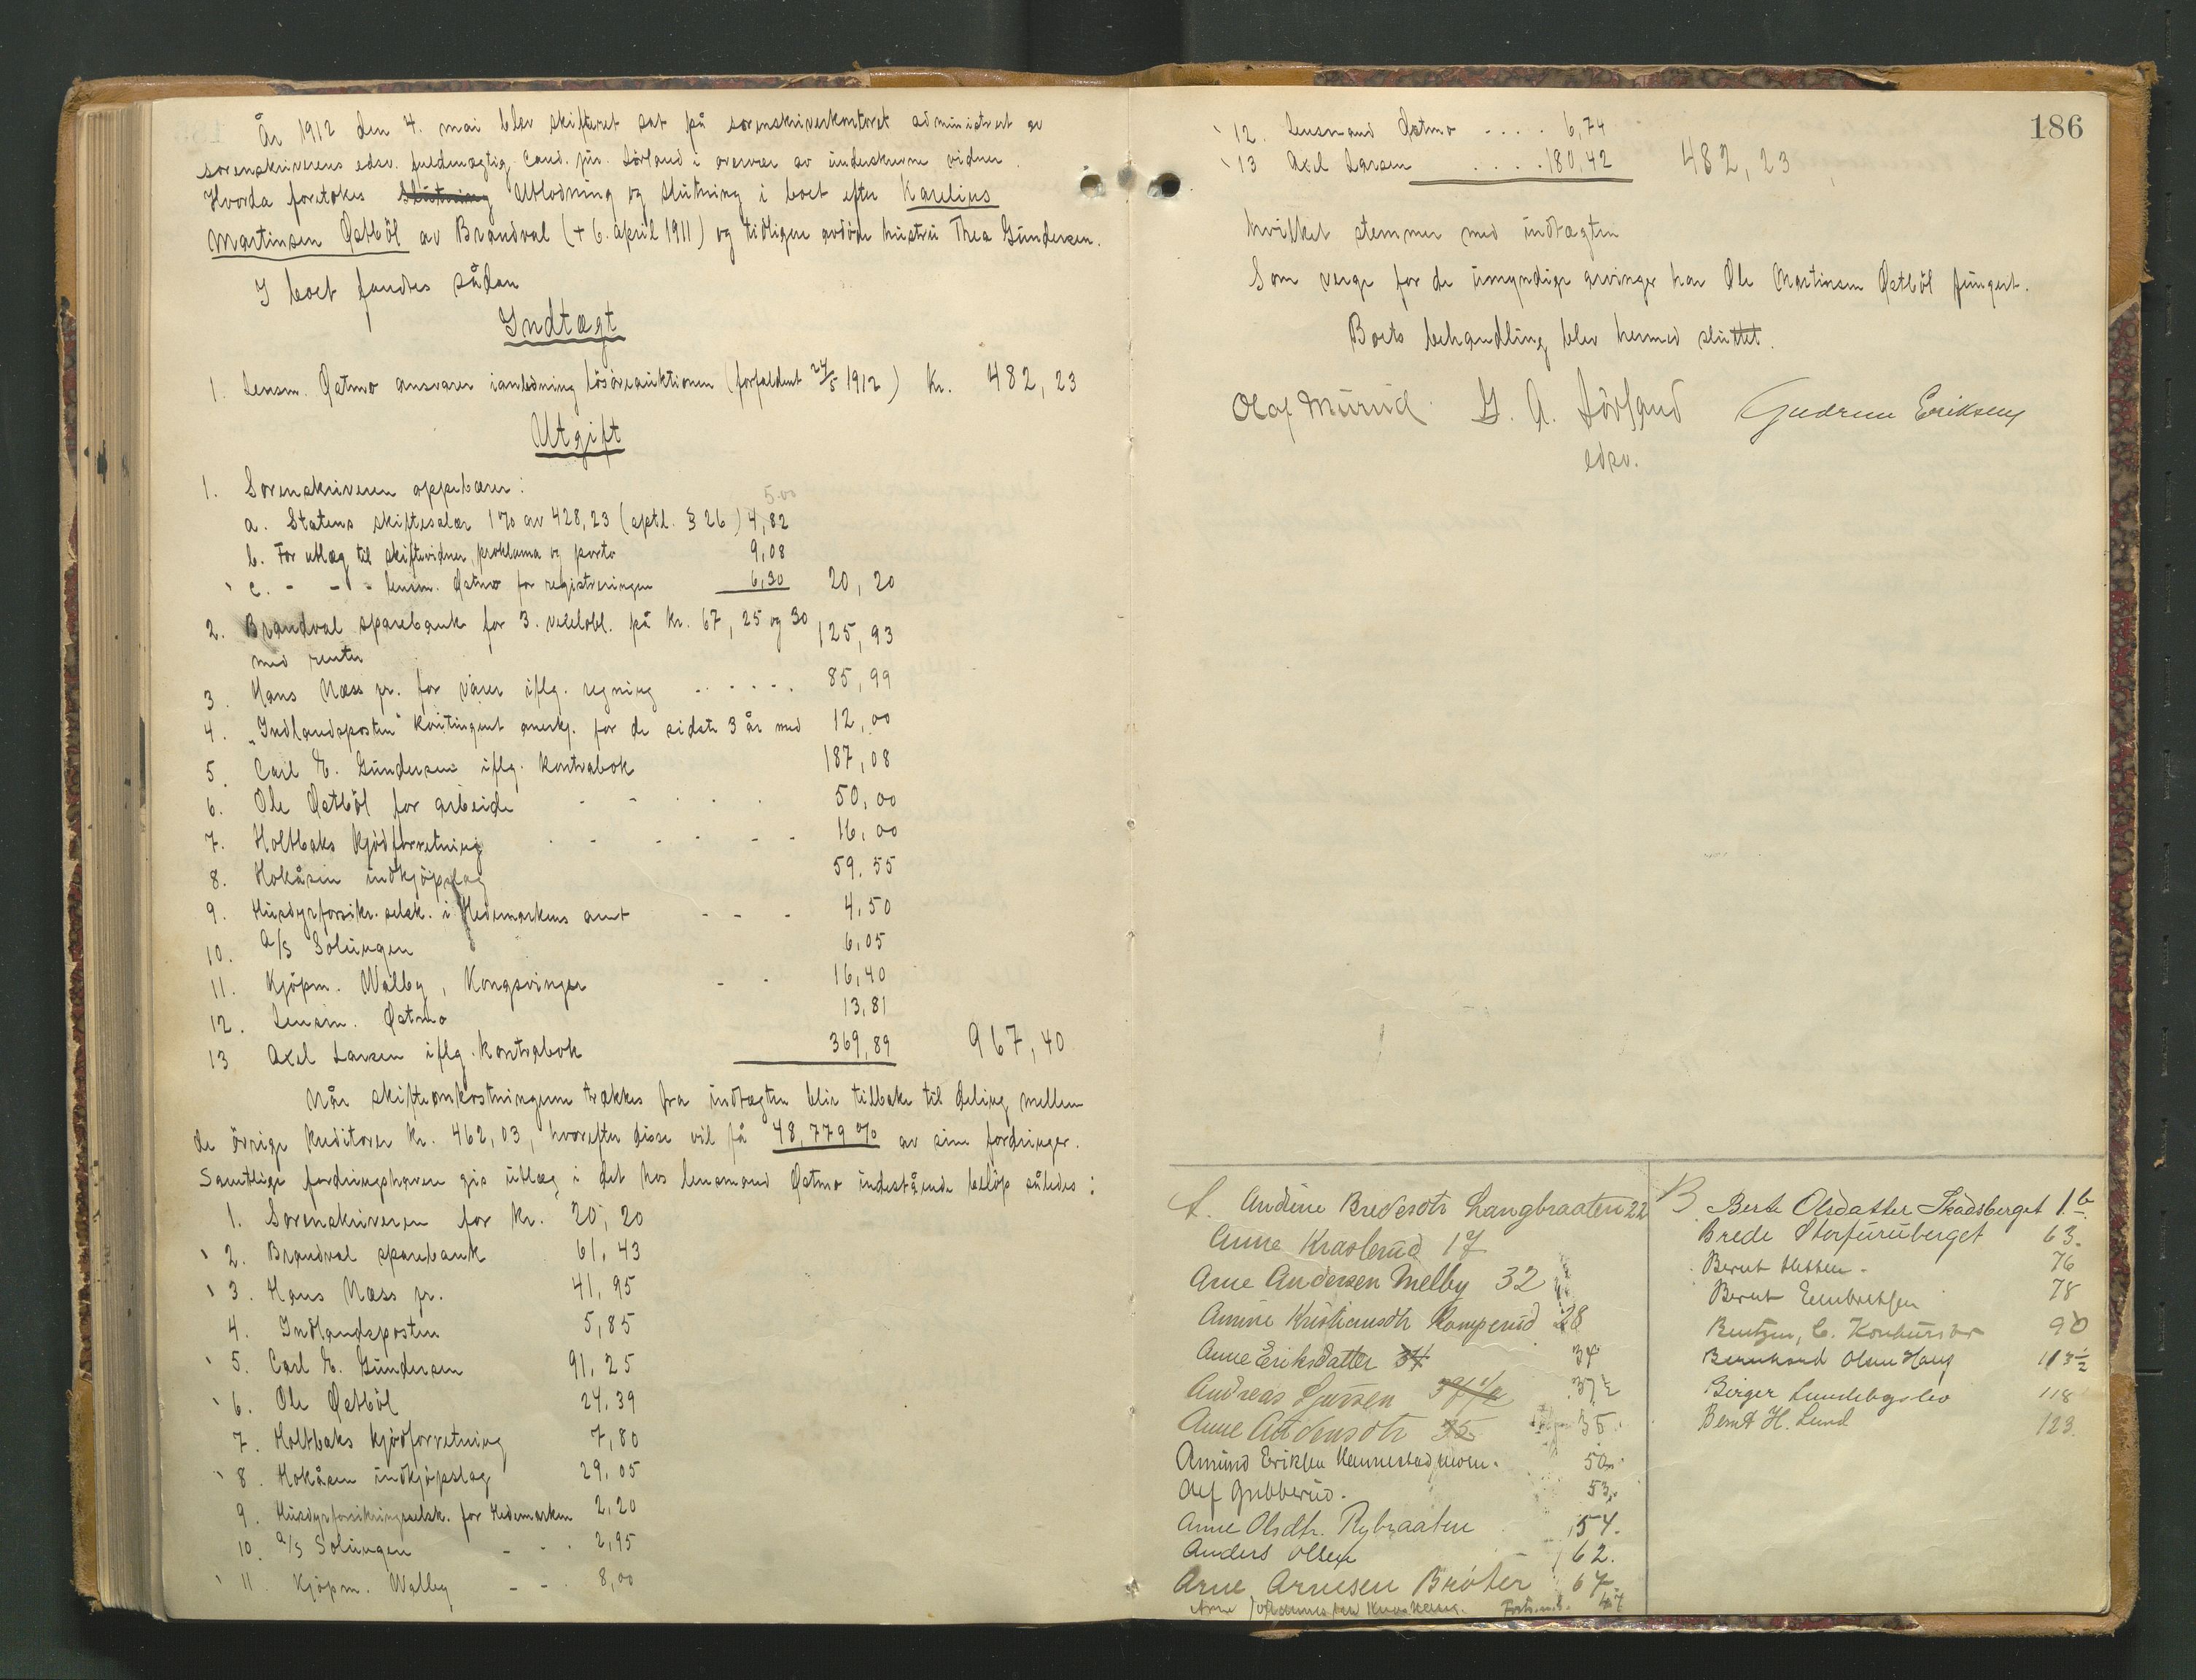 År 1912 den 4. mai blev skifteret sat på sorenskriverkontoret administrert av
sorenskriverens edsv. fuldmægtig cand. jur. Sörland i overvær av underskrevne vidner.
Hvorda foretokes Slutning Utlodning og slutning i boet efter Karelius
Martinsen Östböl av Brandval (+ 6. april 1911) og tidligere avdöde hustru Thea Gundersen.
I boet fandtes sådan
Indtægt
1. Lensm. Östmo ansvarer ianledning lösöreauktionen (forfaldent 24/5 1912) Kr. 482,23
Utgift
1. Sorenskriveren oppebærer:
5.00
a. Statens skiftesalær 1% av 428,23 (sptl. § 26) 4,82
b. For utlæg til skiftevidner, proklama og porto 9,08
c. - - - lensm. Östmo for registreringen 6,30 20,20
2. Brandval sparebank for 3. vexelobl. på kr. 67, 25 og 30 125,93
med renter
3. Hans Næss jr. for varer iflg. regning ...... 85,99
4. "Indlandsposten" kontingent anerkj. for de sidste 3 år med 12,00
5. Carl E. Gundersen iflg. kontrabok 187,08
6. Ole Östböl for arbeide - - - . . 50,00
7. Holtbaks kjödforretning . - - - - 16,00
8. Hokåsen indkjöpslag 59.55
9. Husdyrforsikr. selsk. i Hedemarkens amt - - - 4,50
10. A/S Solungen 6,05
11. Kjöpm. Walby, Kongsvinger - - 16,40
12. Lensm. Östmo 13,81
13 Axel Larsen iflg. kontrabok 369,89 967,40
Når skifteomkostningene trækkes fra indtægten blir tilbake til deling mellem
de övrige kreditorer kr. 462,03, hvorefter disse vil få 48,779% av sine fordringer.
Samtlige fordringshavere gis utlæg i det hos lensmand Östmo indestående belöp således:
1. Sorenskriveren for kr. 20,20
2. Brandval sparebank 61,43
3. Hans Næss jr. 41,95
4. Indlandsposten 5,85
5. Carl E. Gundersen 91,25
6. Ole Östböl 24,39
7. Holtbaks kjödforretning 7,80
8. Hokåsen indkjöpslag 29,05
9. Husdyrforsikringsselsk. for Hedemarken 2,20
10. A/S Solungen - - . 2,95
11. Kjöpm. Walby - - . 8,00
186
12. Lensmand Östmo .... 6,74
13 Axel Larsen ....180,42 482,23
hvilket stemmer med indtægten
Som verge for de umyndige arvinger har Ole Martinsen Östböl fungert.
Boets behandling blev hermed sluttet.
Olaf Murud G. A. Sörland Gudrun Eriksen
edsv.
A. Andine Bredesdtr Langbraaten 22
Anne Krasterud 17
Arne Andersen Melby 32
Amine Kristiansdtr Ramperud 28
Anne Eriksdatter 34 34
Andreas Larssen 37 1/2 37 1/2
Anne Amundsdtr 35 35
Amund Eriksen Hennestadmoen. 50
Alf Gubberud. 53
Anne Olsdtr. Rybraaten 54.
Anders Olsen 62.
Arne Arnesen Bråten 67
Arne 47
B Berte Olsdatter Skadsberget 16
Brede Storfuruberget 63.
Bernt 76
Bernt Embretsen 78
Bentzen, C. Konkursbo 90
Bernhard Olsen Haug 113 1/2
Birger Lundebysbo 118
Bernt H. Lund 123.